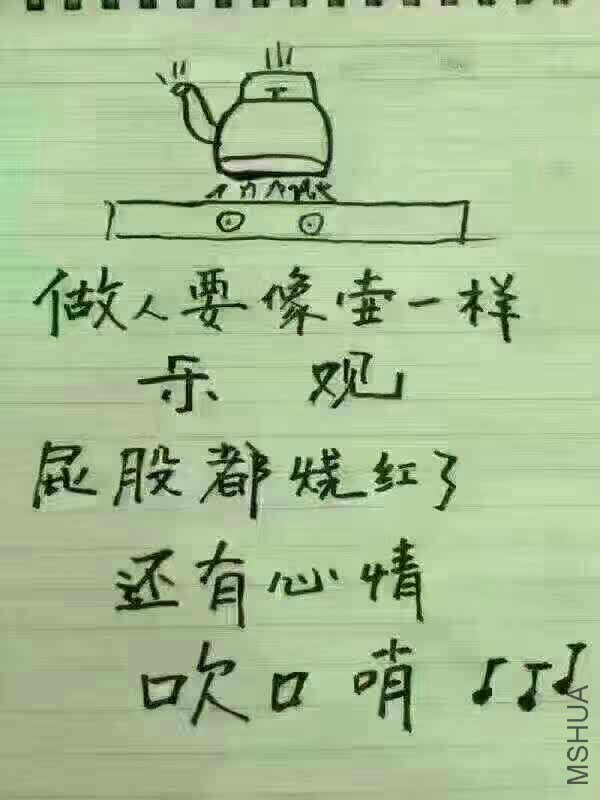 做人要像壶一样
乐观
屁股都烧红了
还有心情
吹口哨
MSHUA